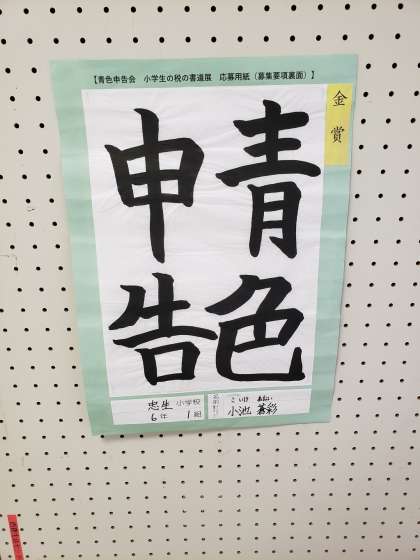 【青色申告会　小学生の税の書道展　応募用紙（募集要項裏面）】
金賞
青色
申告
忠生 小学校
6年 1組
小池 蒼彩